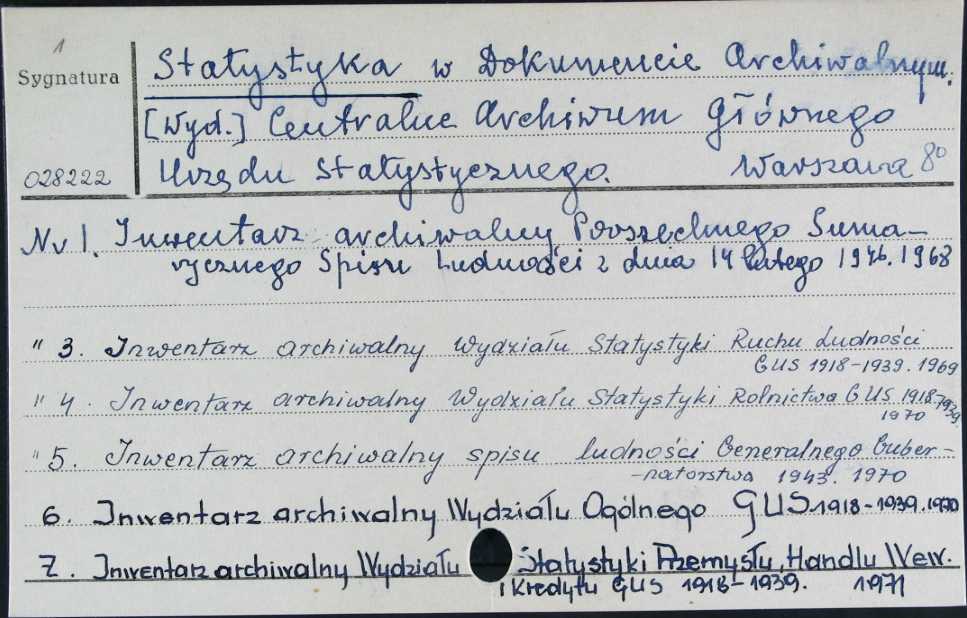 1
Sygnatura
028222
Statystyka w Dokumencie Archiwalnym.
[Wyd.] Centralne Archiwum Głównego
Urzędu Statystycznego. Warszawa 8º
Nr 1. Inwentarz archiwalny Powszechnego Suma-
rycznego Spisu Ludności z dnia 14 lutego 1946. 1968
" 3. Inwentarz archiwalny Wydziału Statystyki Ruchu Ludności
GUS 1918-1939. 1969
" 4. Inwentarz archiwalny Wydziału Statystyki Rolnictwa GUS 1918-1939.
1970
" 5. Inwentarz archiwalny spisu ludności Generalnego Guber-
-natorstwa 1943. 1970
6. Inwentarz archiwalny Wydziału Ogólnego GUS 1918-1939. 1970
7. Inwentarz archiwalny Wydziału Statystyki Przemysłu, Handlu Wew.
i Kredytu GUS 1918-1939. 1971